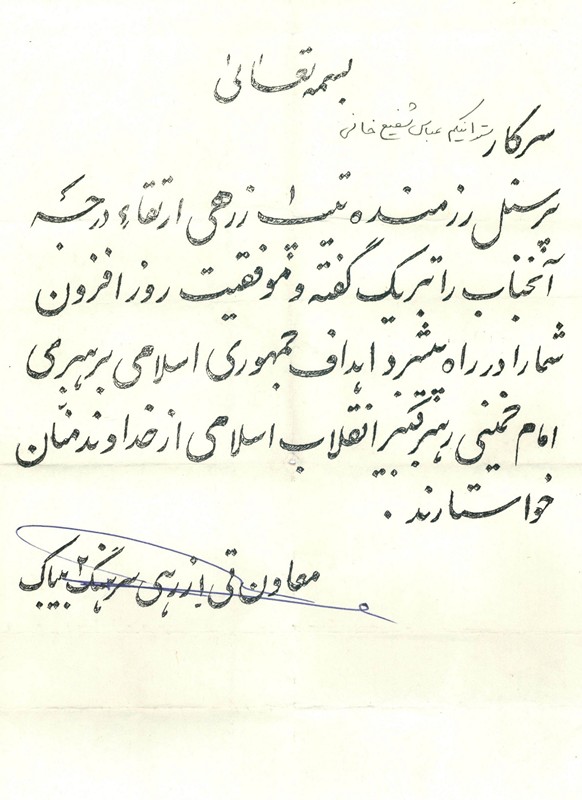 بسمه تعالی
سرکار ستوانیکم عباس شفیع خانی
پرسنل رزمنده تیپ ۱ زرهی ارتقاء درجه
آنجناب را تبریک گفته و موفقیت روز افزون
شما را در راه پیشبرد اهداف جمهوری اسلامی برهبری
امام خمینی رهبر کبیر انقلاب اسلامی از خداوند منان
خواستارند .
معاون تیپ ۱ زرهی سرهنگ ۲ بیباک